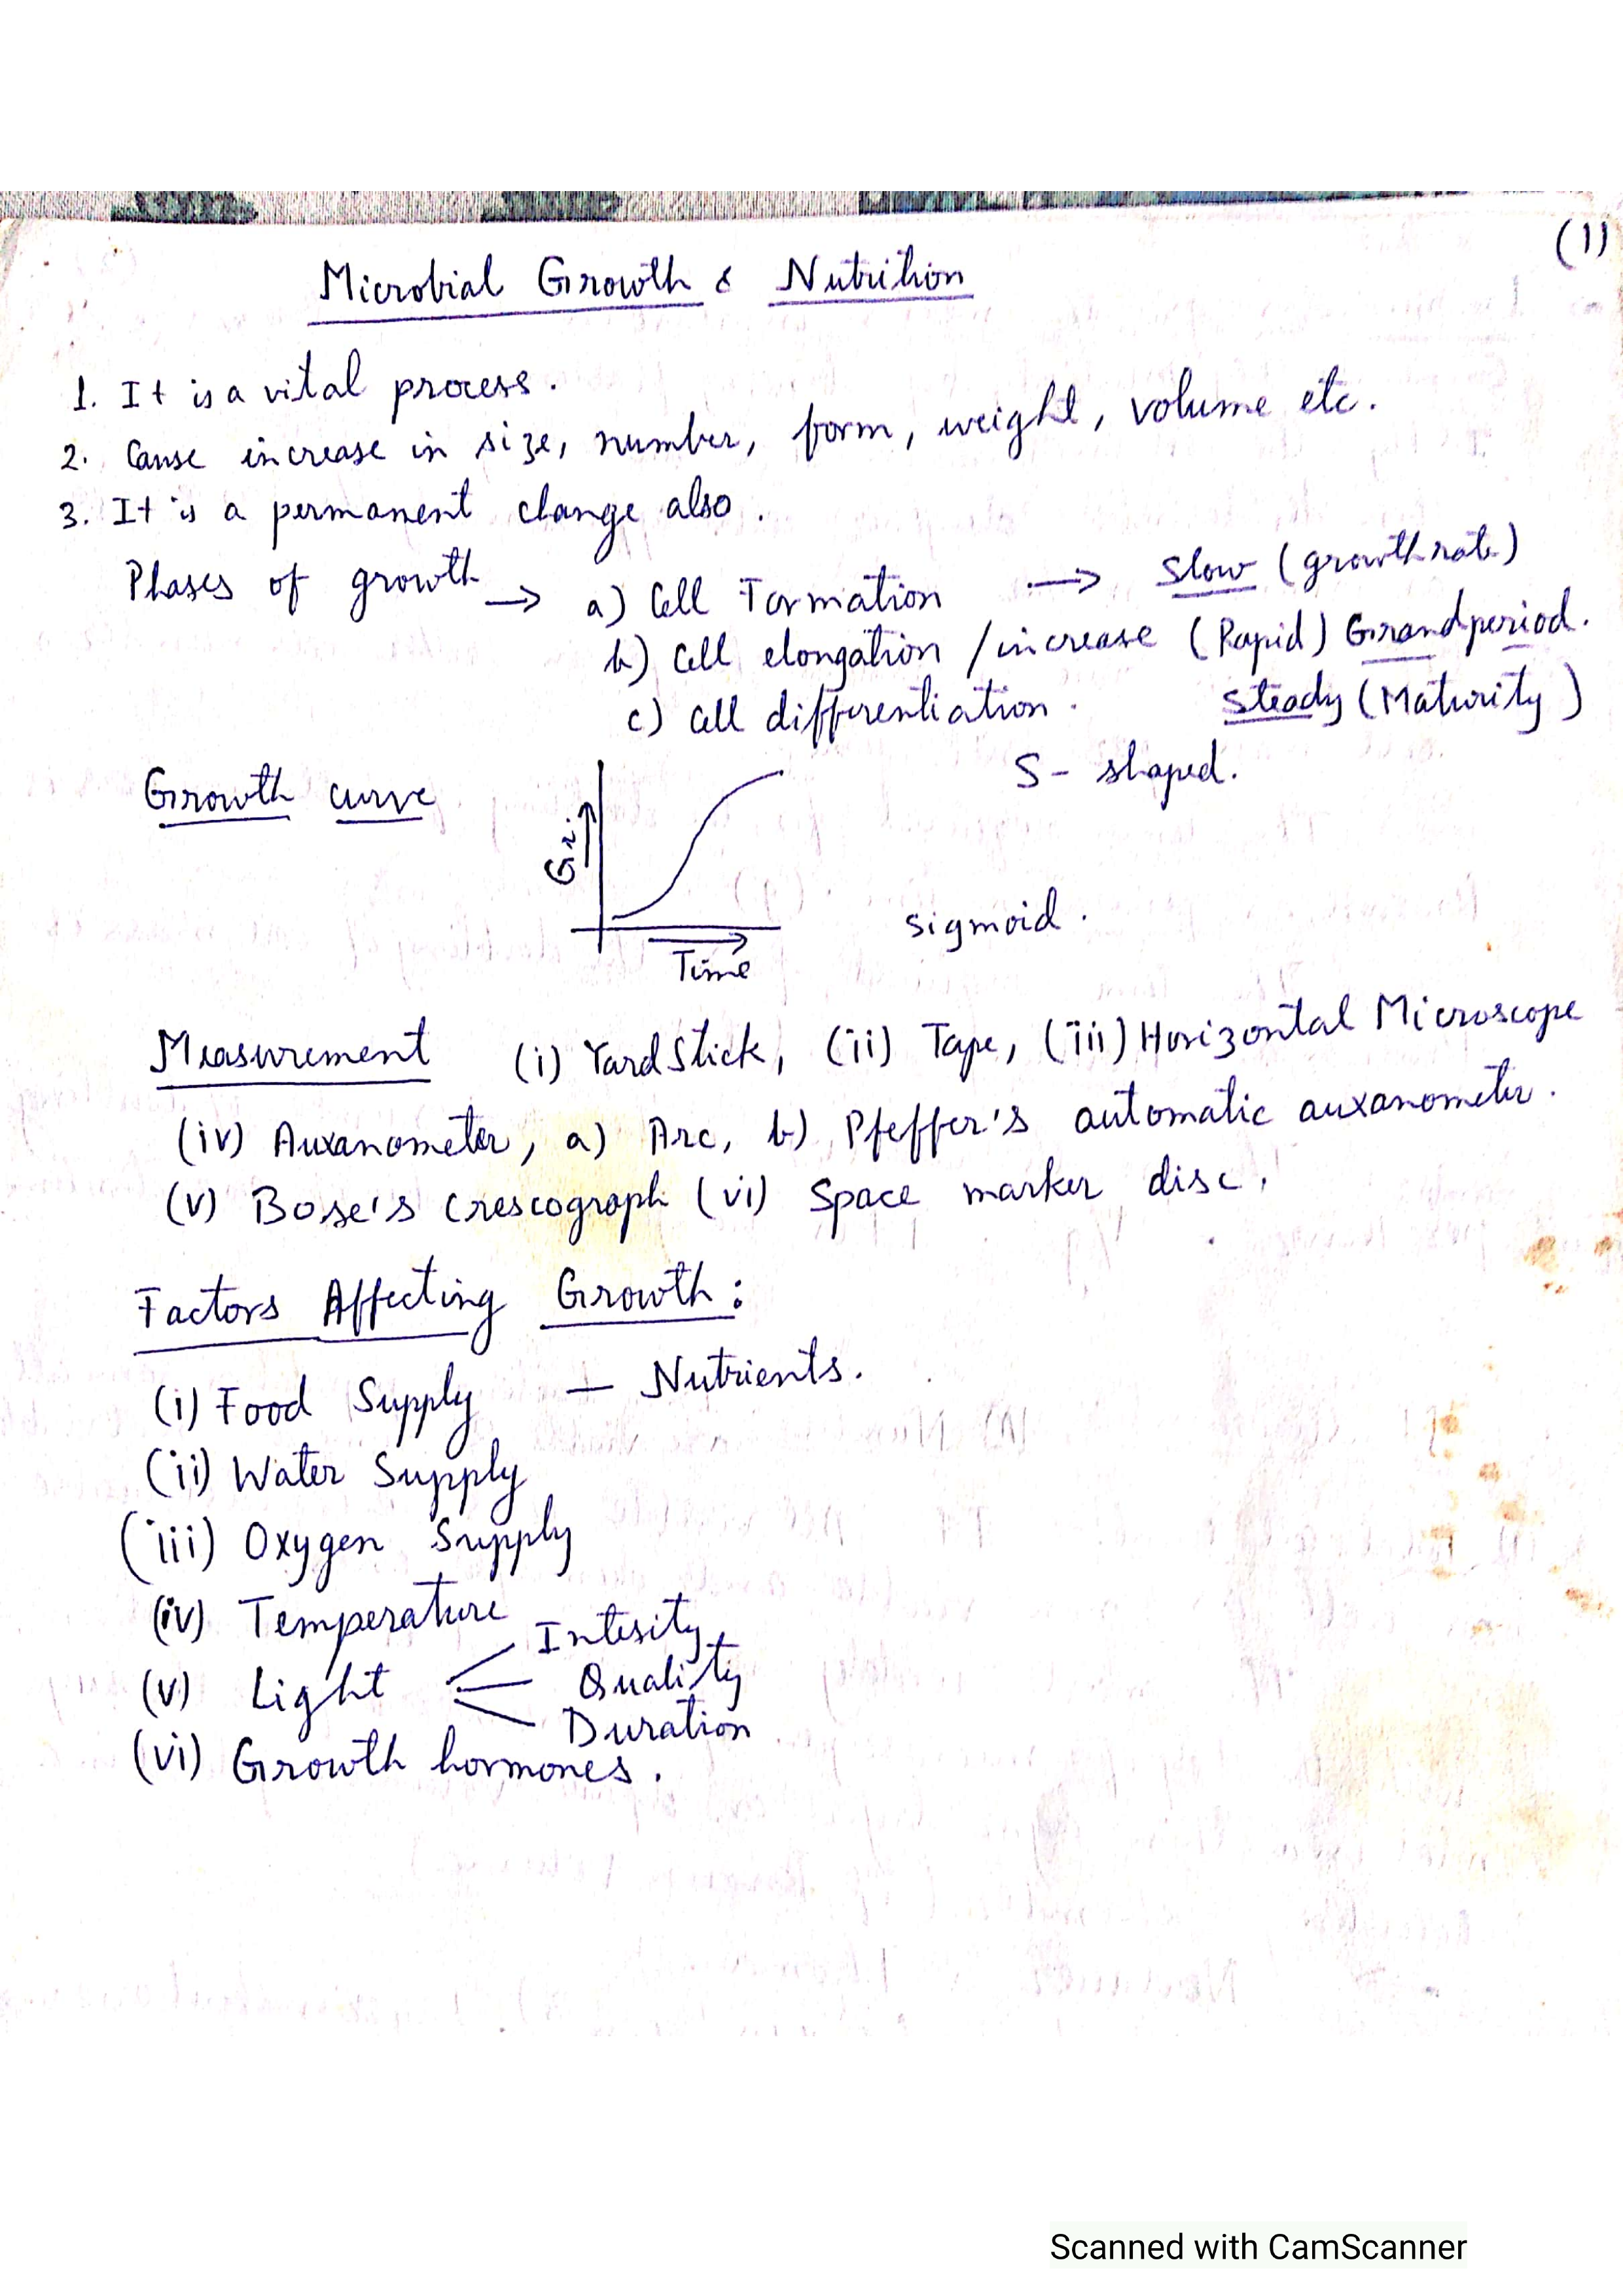 (1)
Microbial Growth & Nutrition
1. It is a vital process.
2. Cause increase in size, number, form, weight, volume etc.
3. It is a permanent change also.
Phases of growth → a) Cell Formation → Slow (growth rate)
b) Cell elongation / increase (Rapid) Grand period.
c) Cell differentiation. Steady (Maturity)
Growth curve S- shaped.
Gr.
sigmoid.
Time
Measurement (i) Yard Stick, (ii) Tape, (iii) Horizontal Microscope
(iv) Auxanometer, a) Arc, b) Pfeffer's automatic auxanometer.
(v) Bose's Crescograph (vi) Space marker disc.
Factors Affecting Growth:
(i) Food Supply — Nutrients.
(ii) Water Supply
(iii) Oxygen Supply
(iv) Temperature
Intesity
(v) Light Quality
Duration
(vi) Growth hormones.
Scanned with CamScanner